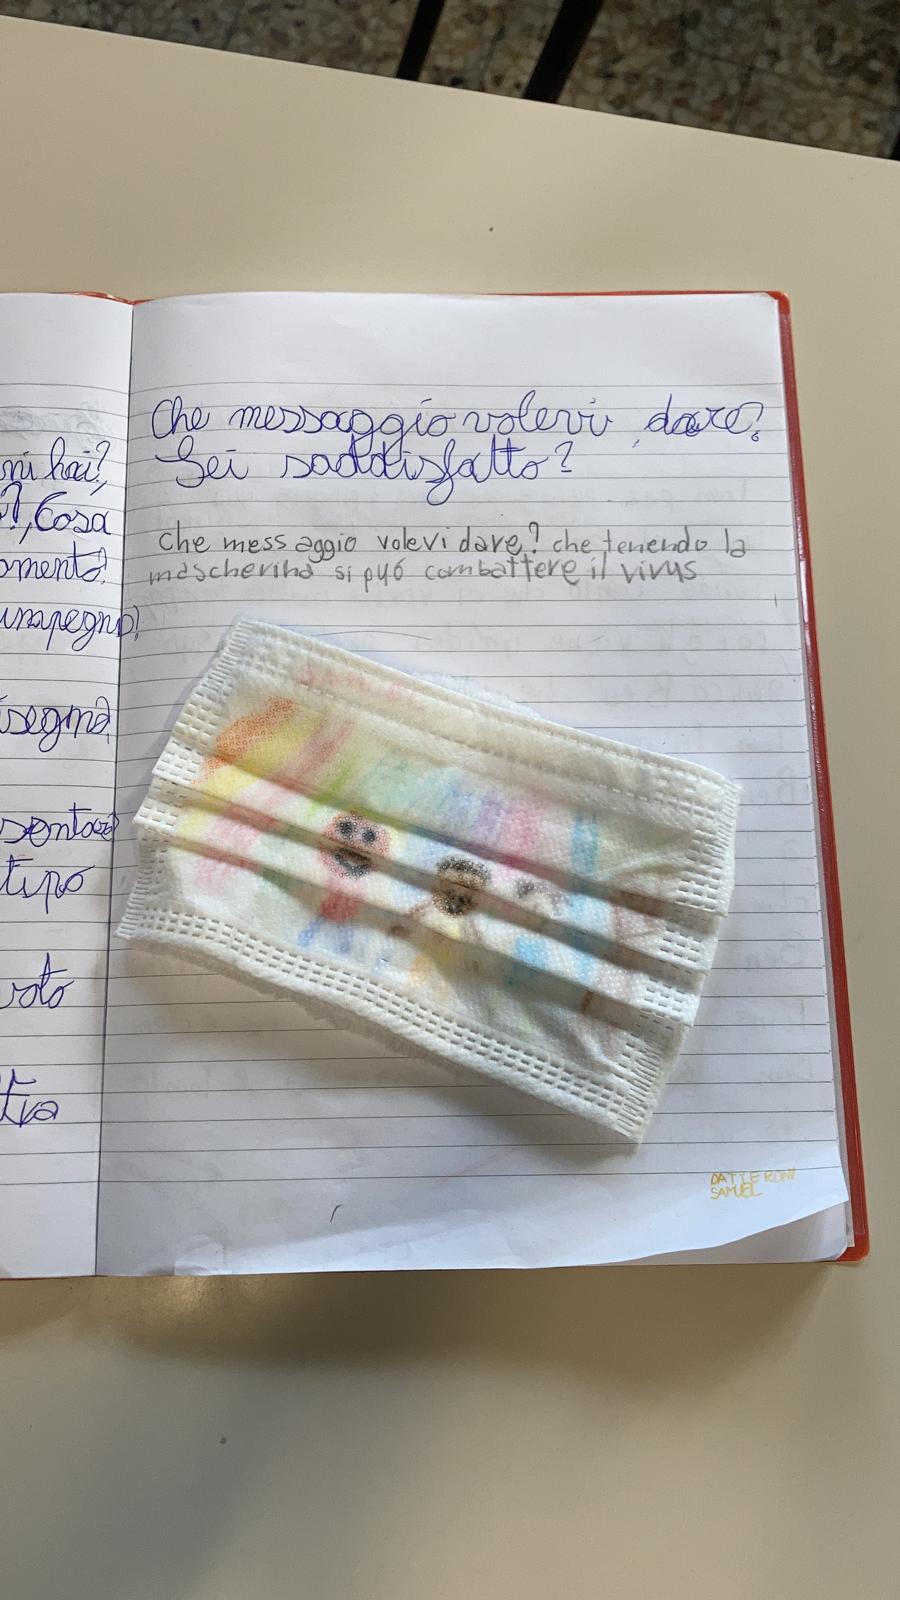 ni hai?,
?, Cosa
omento?
impegno?
isegno?
tipo
voto
tra
Che messaggio volevi dare?
Sei soddisfatto?
che mess aggio volevi dare? che tenendo la
mascherina si puó combattere il virus
DATTERONI
SAMUEL